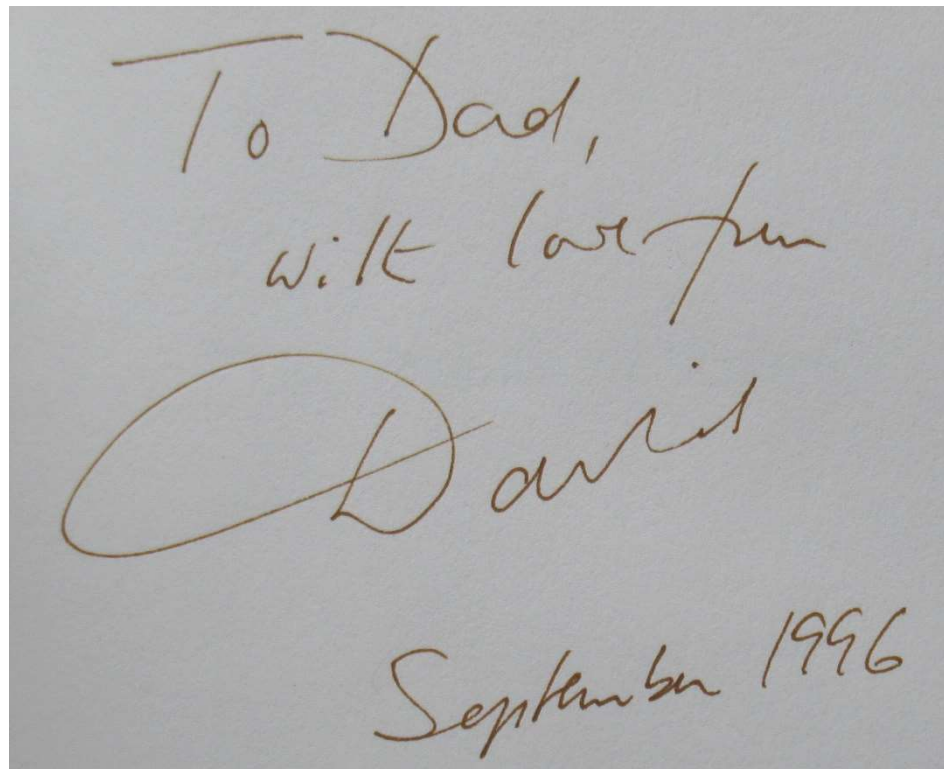 To Dad,
with love from
David
September 1996